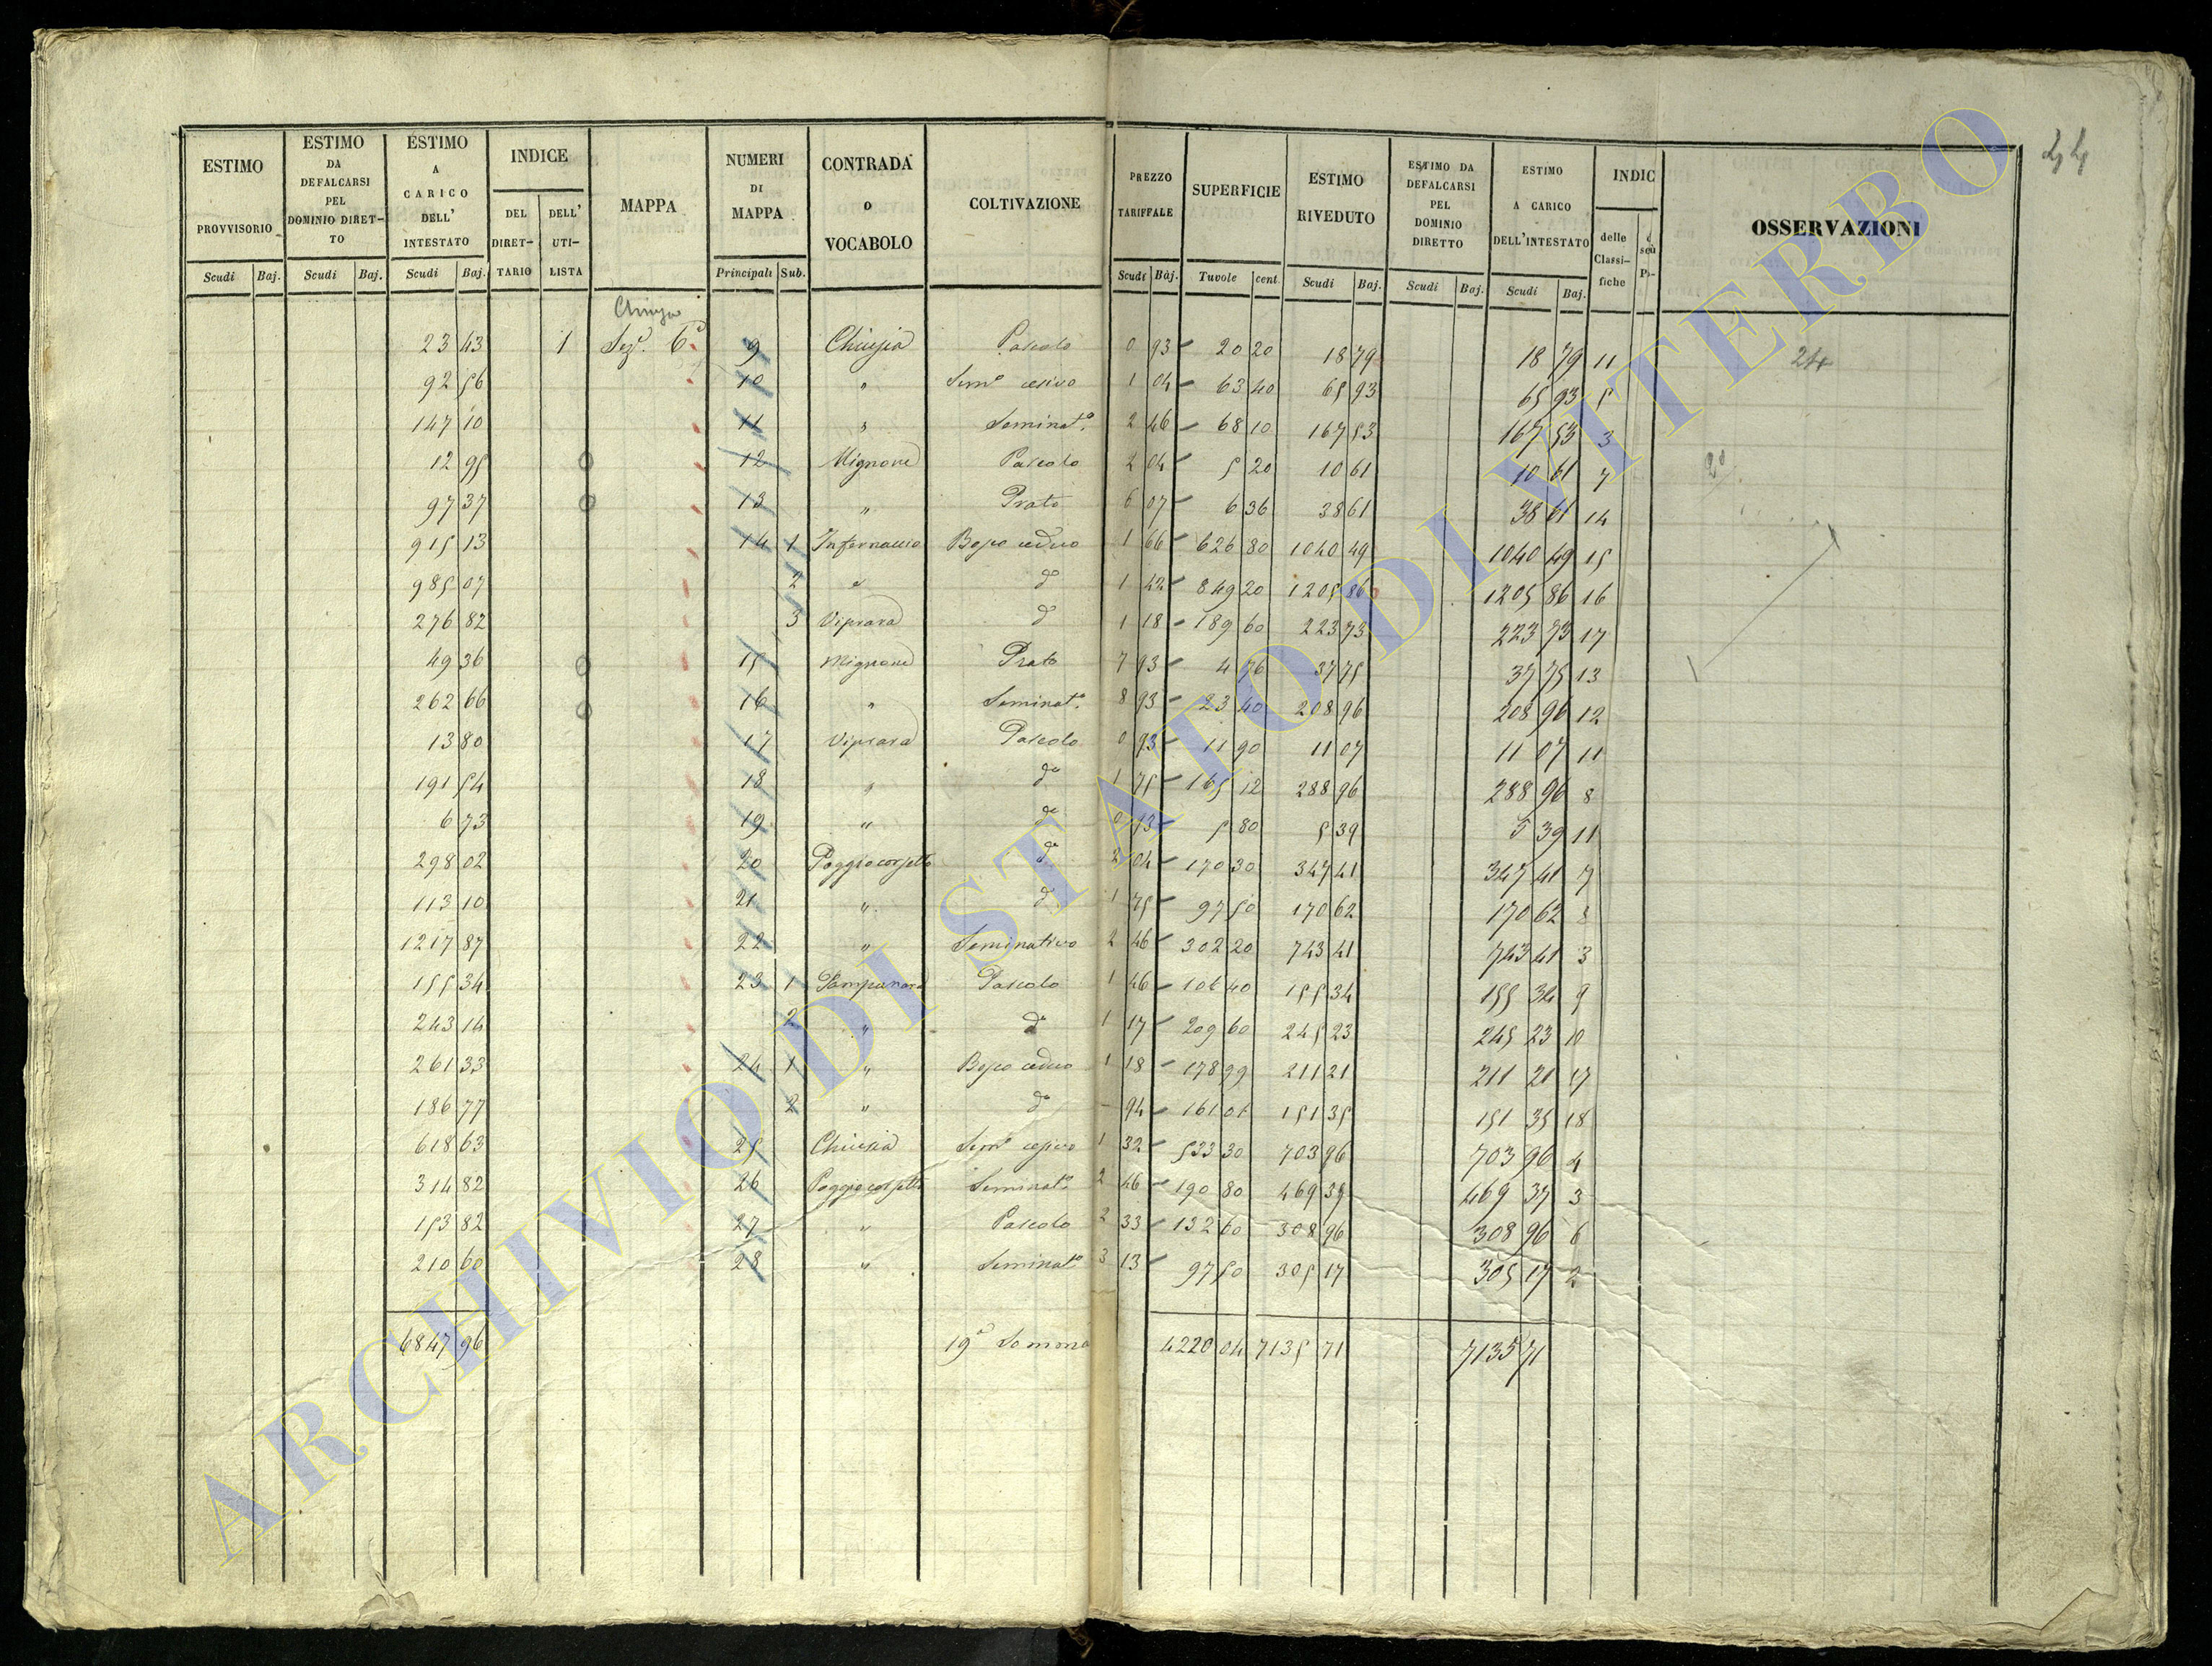 ESTIMO PROVVISORIO | ESTIMO DA DEFALCARSI PEL DOMINIO DIRET-TO | ESTIMO A CARICO DELL' INTESTATO | INDICE DEL DIRET-TARIO | DELL' UTI-LISTA | MAPPA | NUMERI DI MAPPA | CONTRADA o VOCABOLO | COLTIVAZIONE | PREZZO TARIFFALE | SUPERFICIE | ESTIMO RIVEDUTO | ESTIMO DA DEFALCARSI PEL DOMINIO DIRETTO | ESTIMO A CARICO DELL'INTESTATO | INDIC delle Classi-fiche | OSSERVAZIONI
Scudi Baj. | Scudi Baj. | Scudi Baj. | Principali Sub. | Scudi Baj. | Tavole cent. | Scudi Baj. | Scudi Baj. | Scudi Baj.
44
23 43 | 1 | Sezᵉ. 6ª | 9 | Chiusa | Pascolo | 0 93 | 20 20 | 18 79 | 18 79 | 11 | 24
92 56 | 10 | " | Semᵒ cesivo | 1 04 | 63 40 | 65 93 | 65 93 | 5
147 10 | 11 | " | Seminatᵒ. | 2 46 | 68 10 | 167 53 | 167 53 | 3
12 95 | 12 | Mignone | Pascolo | 2 04 | 5 20 | 10 61 | 10 61 | 7
97 37 | 13 | " | Prato | 6 07 | 6 36 | 38 61 | 38 61 | 14
915 13 | 14 1 | Infernaccio | Bosco ceduo | 1 66 | 626 80 | 1040 49 | 1040 49 | 15
985 07 | 2 | " | dᵒ | 1 42 | 849 20 | 1205 86 | 1205 86 | 16
276 82 | 3 | Viprara | dᵒ | 1 18 | 189 60 | 223 73 | 223 73 | 17
49 36 | 15 | Mignone | Prato | 7 93 | 4 76 | 37 75 | 37 75 | 13
262 66 | 16 | " | Seminatᵒ. | 8 93 | 23 40 | 208 96 | 208 96 | 12
13 80 | 17 | Viprara | Pascolo | 0 93 | 11 90 | 11 07 | 11 07 | 11
191 54 | 18 | " | dᵒ | 1 75 | 165 12 | 288 96 | 288 96 | 8
6 73 | 19 | " | dᵒ | 0 93 | 5 80 | 5 39 | 5 39 | 11
298 02 | 20 | Poggiocorsetto | dᵒ | 2 04 | 170 30 | 347 41 | 347 41 | 7
113 10 | 21 | " | dᵒ | 1 75 | 97 50 | 170 62 | 170 62 | 8
1217 87 | 22 | " | Seminativo | 2 46 | 302 20 | 743 41 | 743 41 | 3
155 34 | 23 1 | Pascolo | 1 46 | 106 40 | 155 34 | 155 34 | 9
243 14 | 2 | " | dᵒ | 1 17 | 209 60 | 245 23 | 245 23 | 10
261 33 | 24 1 | " | Bosco ceduo | 1 18 | 178 99 | 211 21 | 211 21 | 17
186 77 | 2 | " | dᵒ | – 94 | 161 01 | 151 35 | 151 35 | 18
618 63 | 25 | Chiusa | Semᵒ cesivo | 1 32 | 533 30 | 703 96 | 703 96 | 4
314 82 | 26 | Poggiocorsetto | Seminatᵒ. | 2 46 | 190 80 | 469 37 | 469 37 | 3
153 82 | 27 | " | Pascolo | 2 33 | 132 60 | 308 96 | 308 96 | 6
210 60 | 28 | " | Seminatᵒ | 3 13 | 97 50 | 305 17 | 305 17 | 2
6847 96 | 19ª Somma | 4220 04 | 7135 71 | 7135 71
ARCHIVIO DI STATO DI VITERBO